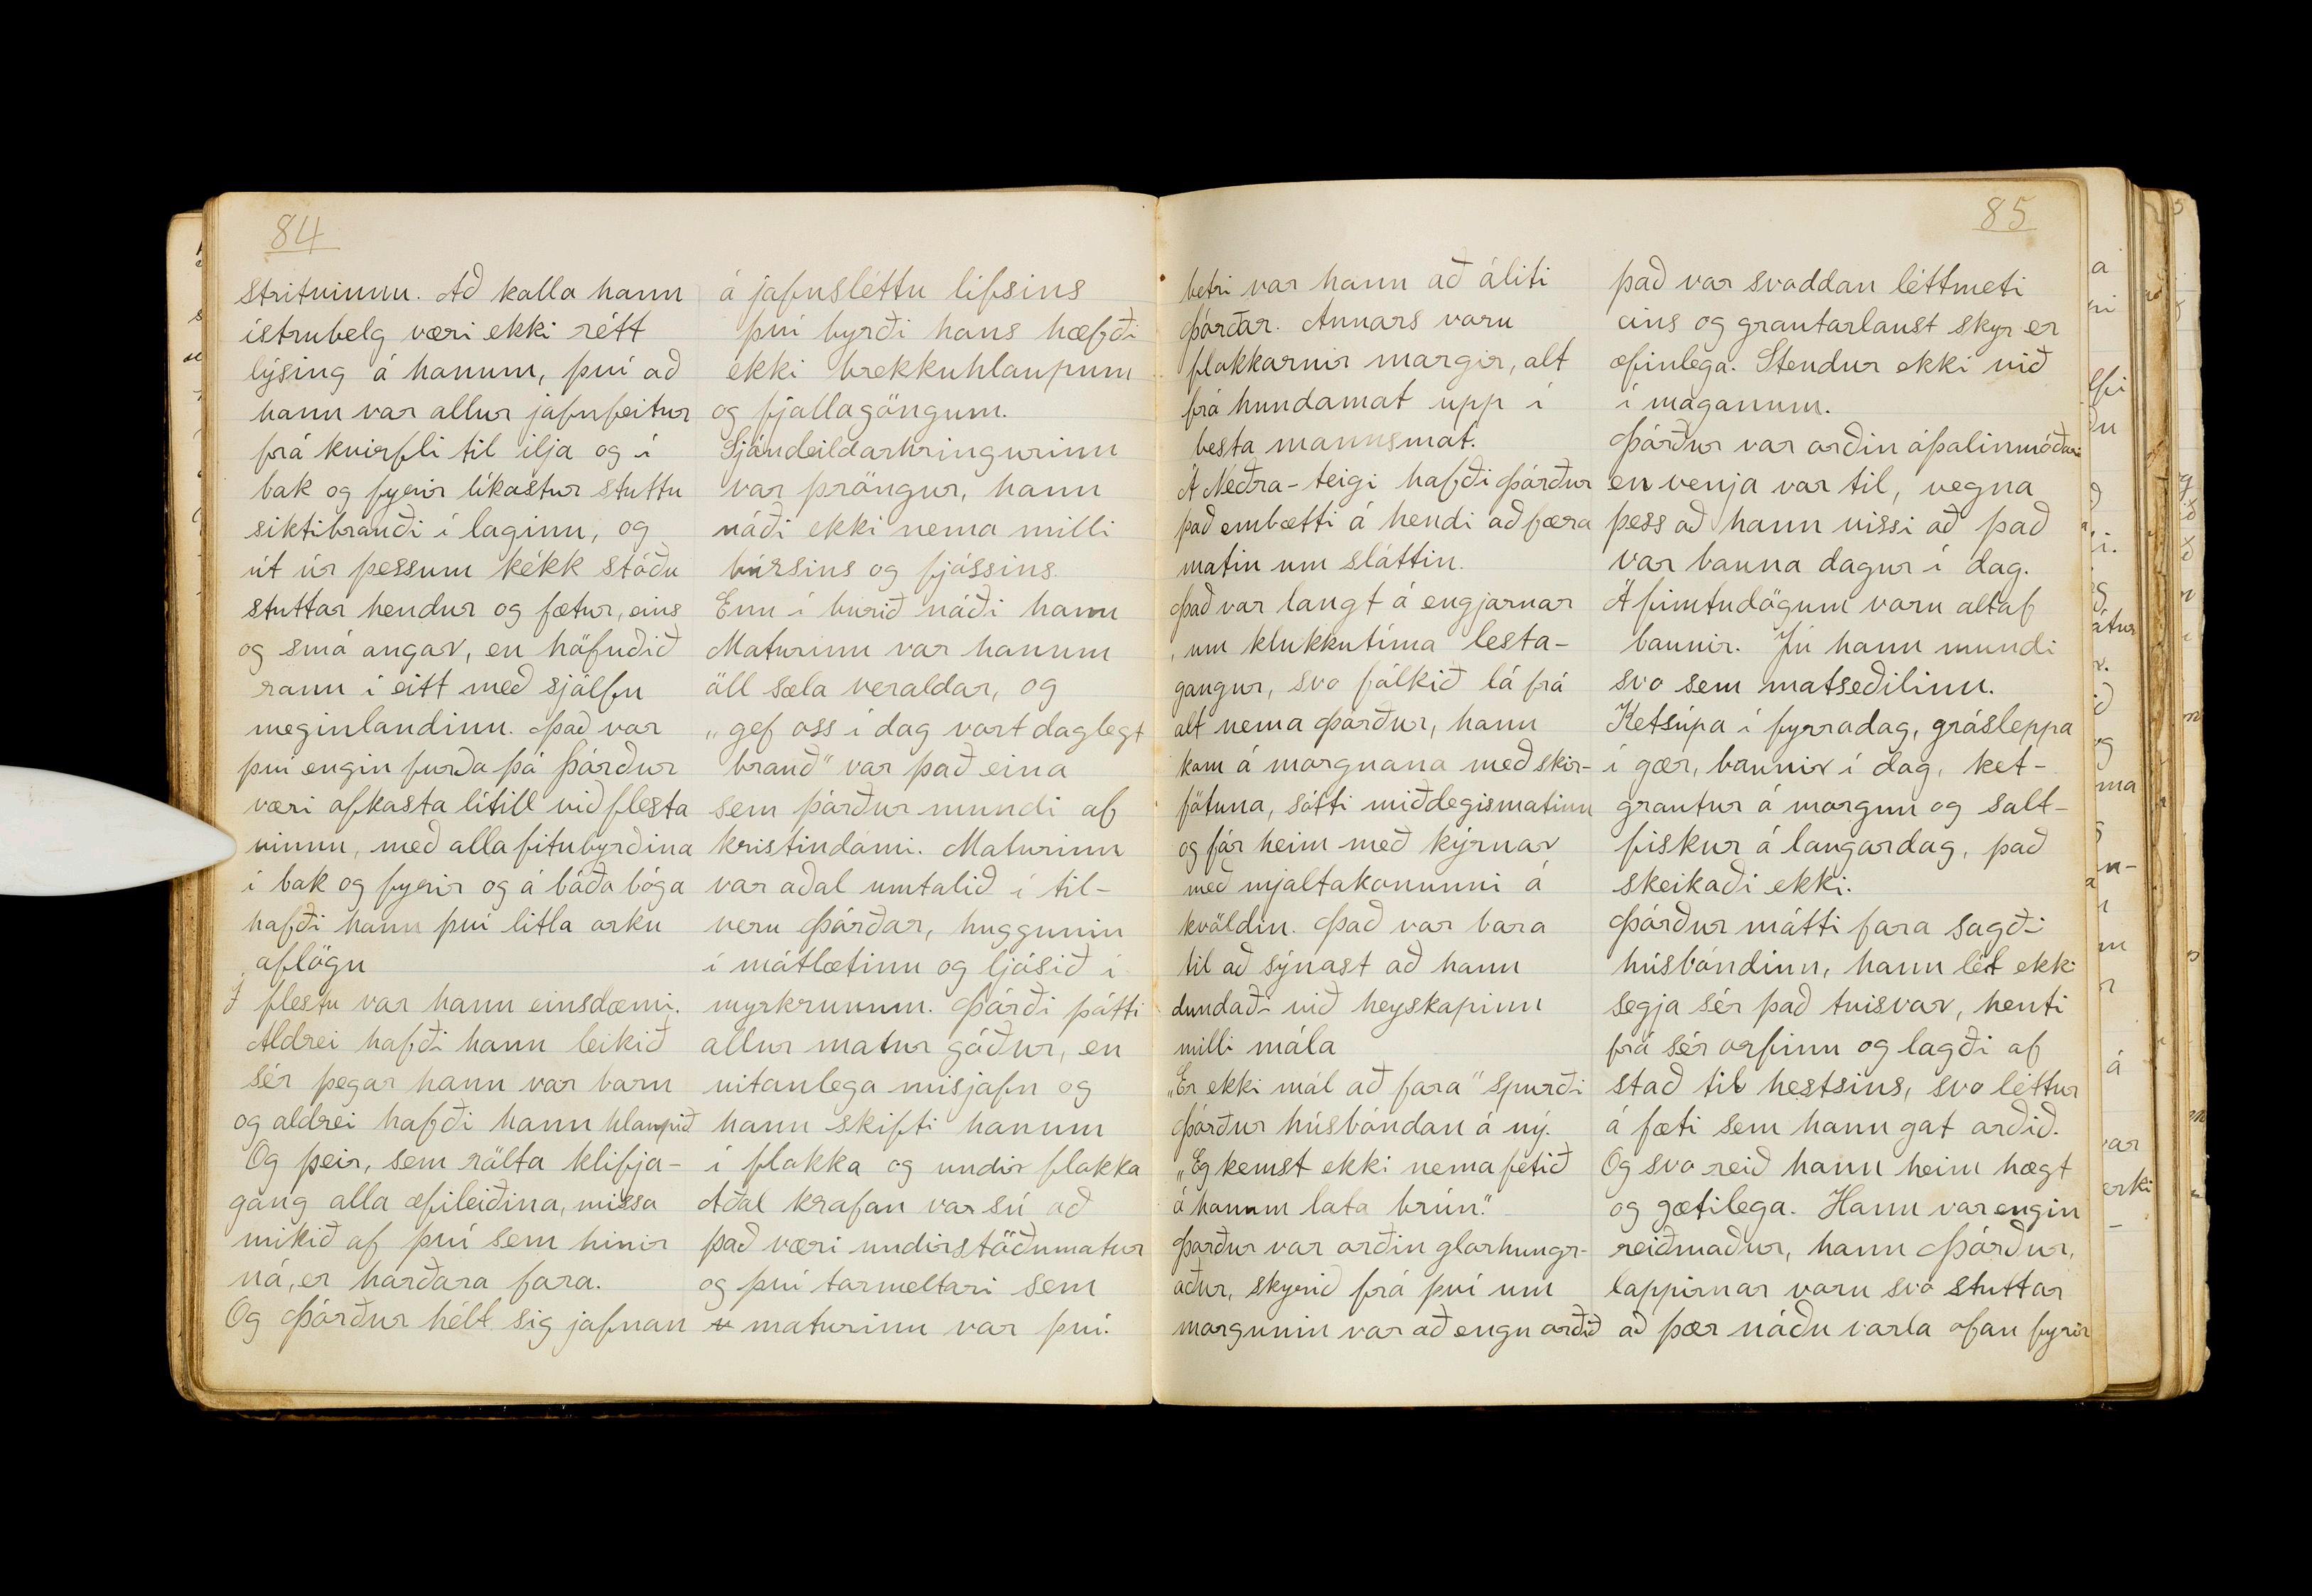 84
stritvinnu. Að kalla hann
ístrubelg væri ekki rétt
lýsing á honum, því að
hann var allur jafnfeitur
frá kvirfli til ilja og í
bak og fyrir líkastur stuttu
siktibrauði í laginu, og
út úr þessum kékk stóðu
stuttar hendur og fætur, eins
og smá angar, en höfuðið
rann í eitt með sjálfu
meginlandinu. Það var
því engin furða þó Þórður
væri afkasta lítill við flesta
vinnu, með alla fitubyrðina
í bak og fyrir og á báða bóga
hafði hann því litla orku
aflögu
Í flestu var hann einsdæmi.
Aldrei hafði hann leikið
sér þegar hann var barn
og aldrei hafði hann hlaupið
Og þeir, sem rölta klifja-
gang alla æfileiðina, missa
mikið af því sem hinir
ná, er harðara fara.
Og Þórður hélt sig jafnan
á jafnsléttu lífsins
því byrði hans hæfði
ekki brekkuhlaupum
og fjallagöngum.
Sjóndeildarhringurinn
var þröngur, hann
náði ekki nema milli
búrsins og fjóssins.
Enn í búrið náði hann
Maturinn var honum
öll sæla veraldar, og
„gef oss í dag vort daglegt
brauð" var það eina
sem Þórður mundi af
kristindómi. Maturinn
var aðal umtalið í til-
veru Þórðar, huggunin
í mótlætinu og ljósið í
myrkrunum. Þórði þótti
allur matur góður, en
vitanlega misjafn og
hann skifti honum
í flokka og undir flokka
Aðal krafan var sú að
það væri undirstöðumatur
og því tormeltari sem
maturinn var því.
85
betri var hann að áliti
Þórðar. Annars voru
flokkarnir margir, alt
frá hundamat upp í
besta mannsmat.
Á Neðra-teigi hafði Þórður
það embætti á hendi að færa
matin um sláttin.
Það var langt á engjarnar
, um klukkutíma lesta-
gangur, svo fólkið lá frá
alt nema Þórður, hann
kom á morgnana með skir-
fötuna, sótti miðdegismatinn
og fór heim með kýrnar
með mjaltakonunni á
kvöldin. Það var bara
til að sýnast að hann
dundaði við heyskapinn
milli mála
„Er ekki mál að fara" spurði
Þórður húsbóndan á ný.
„Eg kemst ekki nema fetið
á honum lata brún."
Þórður var orðin glorhungr-
aður, skyrið frá því um
morgunin var að engu orðið
það var svoddan léttmeti
eins og grautarlaust skyr er
æfinlega. Stendur ekki við
í maganum.
Þórður var orðin óþolinmóðari
en venja var til, vegna
þess að hann vissi að það
var bauna dagur í dag.
Á fimtudögum voru altaf
baunir. Jú hann mundi
svo sem matseðilinn.
Ketsúpa í fyrradag, grásleppa
í gær, baunir í dag, ket-
grautur á morgun og salt-
fiskur á laugardag, það
skeikaði ekki.
Þórður mátti fara sagði
húsbóndinn, hann lét ekki
segja sér það tvisvar, henti
frá sér orfinu og lagði af
stað til hestsins, svo léttur
á fæti sem hann gat orðið.
Og svo reið hann heim hægt
og gætilega. Hann var engin
reiðmaður, hann Þórður,
lappirnar voru svo stuttar
að þær náðu varla ofan fyrir